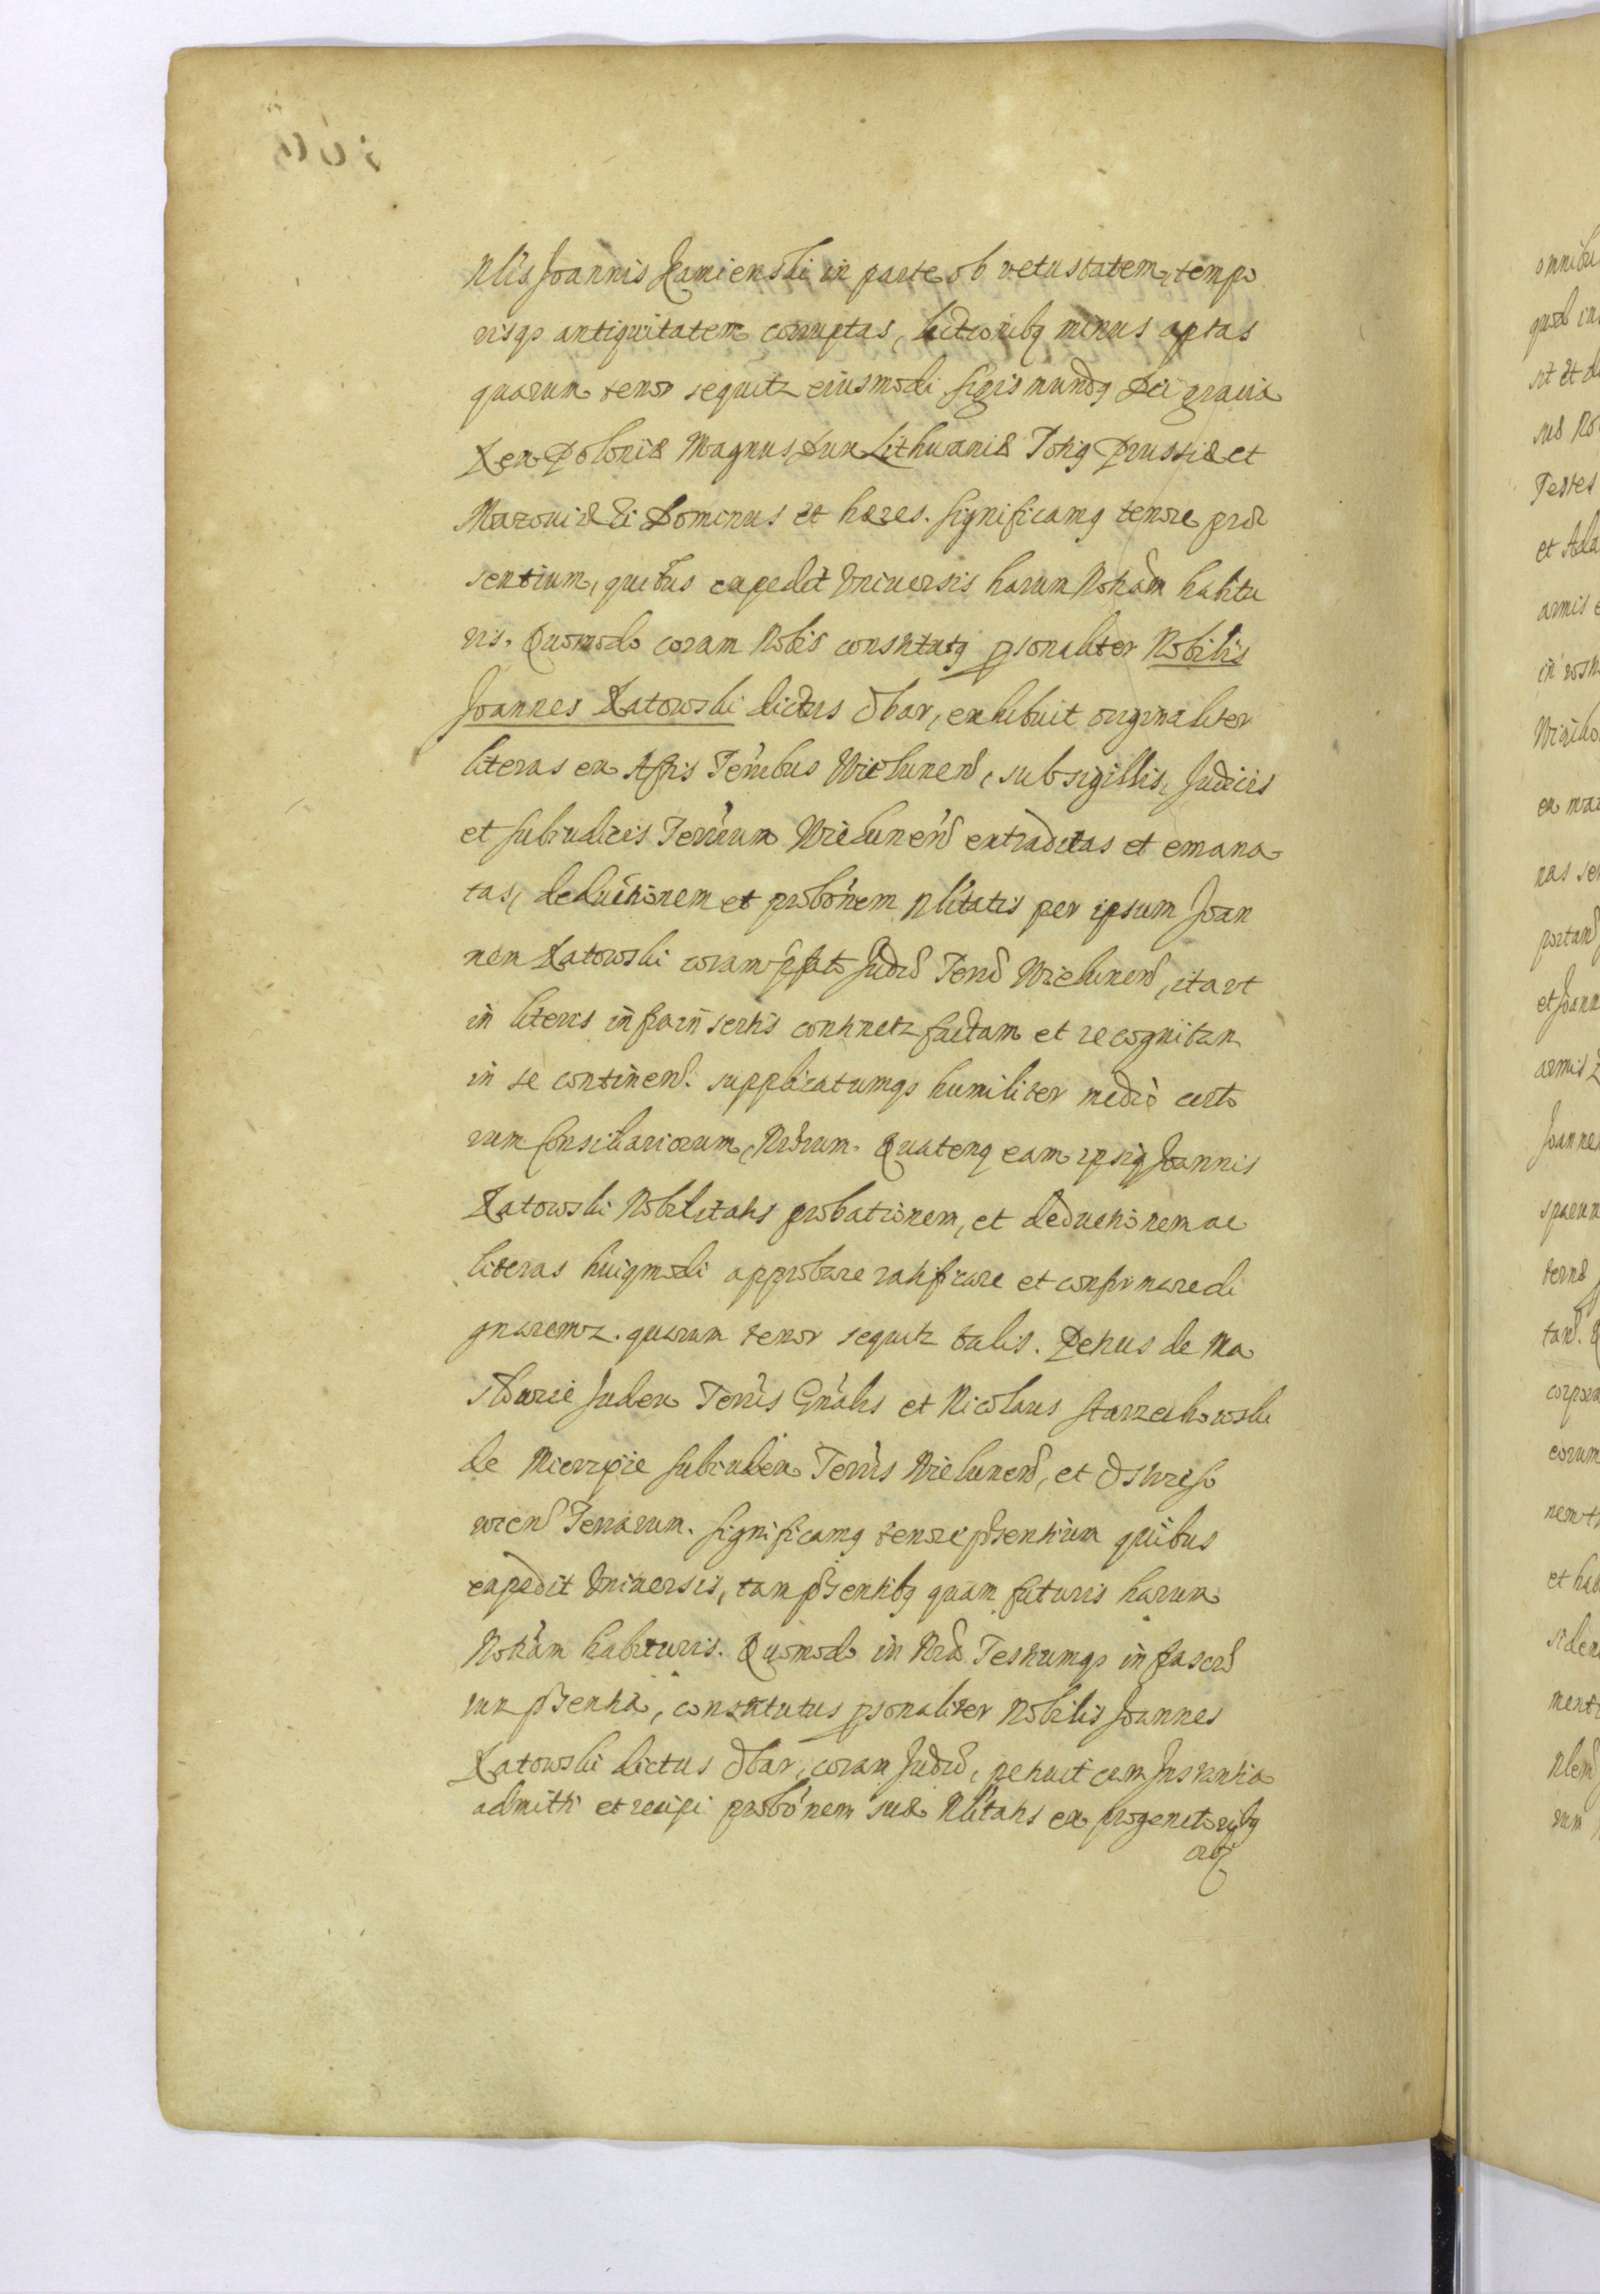 Nlis Joannis Kamienski in parte ob vetustatem, tempo
risq3 antiquitatem corruptas, lectionibq minus aptas
quarum tenor sequitz eiusmodi Sigismundq Dei gratia
Rex Poloniæ Magnus Dux Lithuaniæ Totiq Prussiæ et
Mazoviæ Dominus et hæres. Significamq tenore præ
sentium, quibus expedit Universis harum Notiam habitu
ris. Quomodo coram Nobis constitutq psonaliter Nobilis
Joannes Ratowski dictus Obar, exhibuit originaliter
literas ex Actis Terribus Wielunen, sub sigillis, Judicis
et Subiudicis Terrarum Wielunen extraditas et emana
tas, deductionem et probonem Nlitatis per ipsum Joan
nem Ratowski coram pfato Judo Terr Wielunen, ita ut
in literis infra insertis continetz factam et recognitam
in se continen. supplicatumq3 humiliter medio certo
rum Consiliariorum Nrorum. Quatenq eam ipsiq Joannis
Ratowski Nobilitatis probationem, et deductionem ac
literas huiqmodi approbare ratificare et confirmare di
gnaremz. quarum tenor sequitz talis. Petrus de Ma
Judex Terris Gnalis et Nicolaus Starzechowski
de Mierzyce Subiudex Terris Wielunen, et Ostrzeszo
wien Terrarum. Significamq tenore pntium quibus
expedit Universis, tam pntibq quam futuris harum
Notiam habituris. Quomodo in Nra Testiumq3 infrascr
um pntia, constitutus psonaliter Nobilis Joannes
Ratowski dictus Obar, coram Judo, petivit cum Instantia
admitti et recipi probonem suæ Nlitatis ex progenitoribq